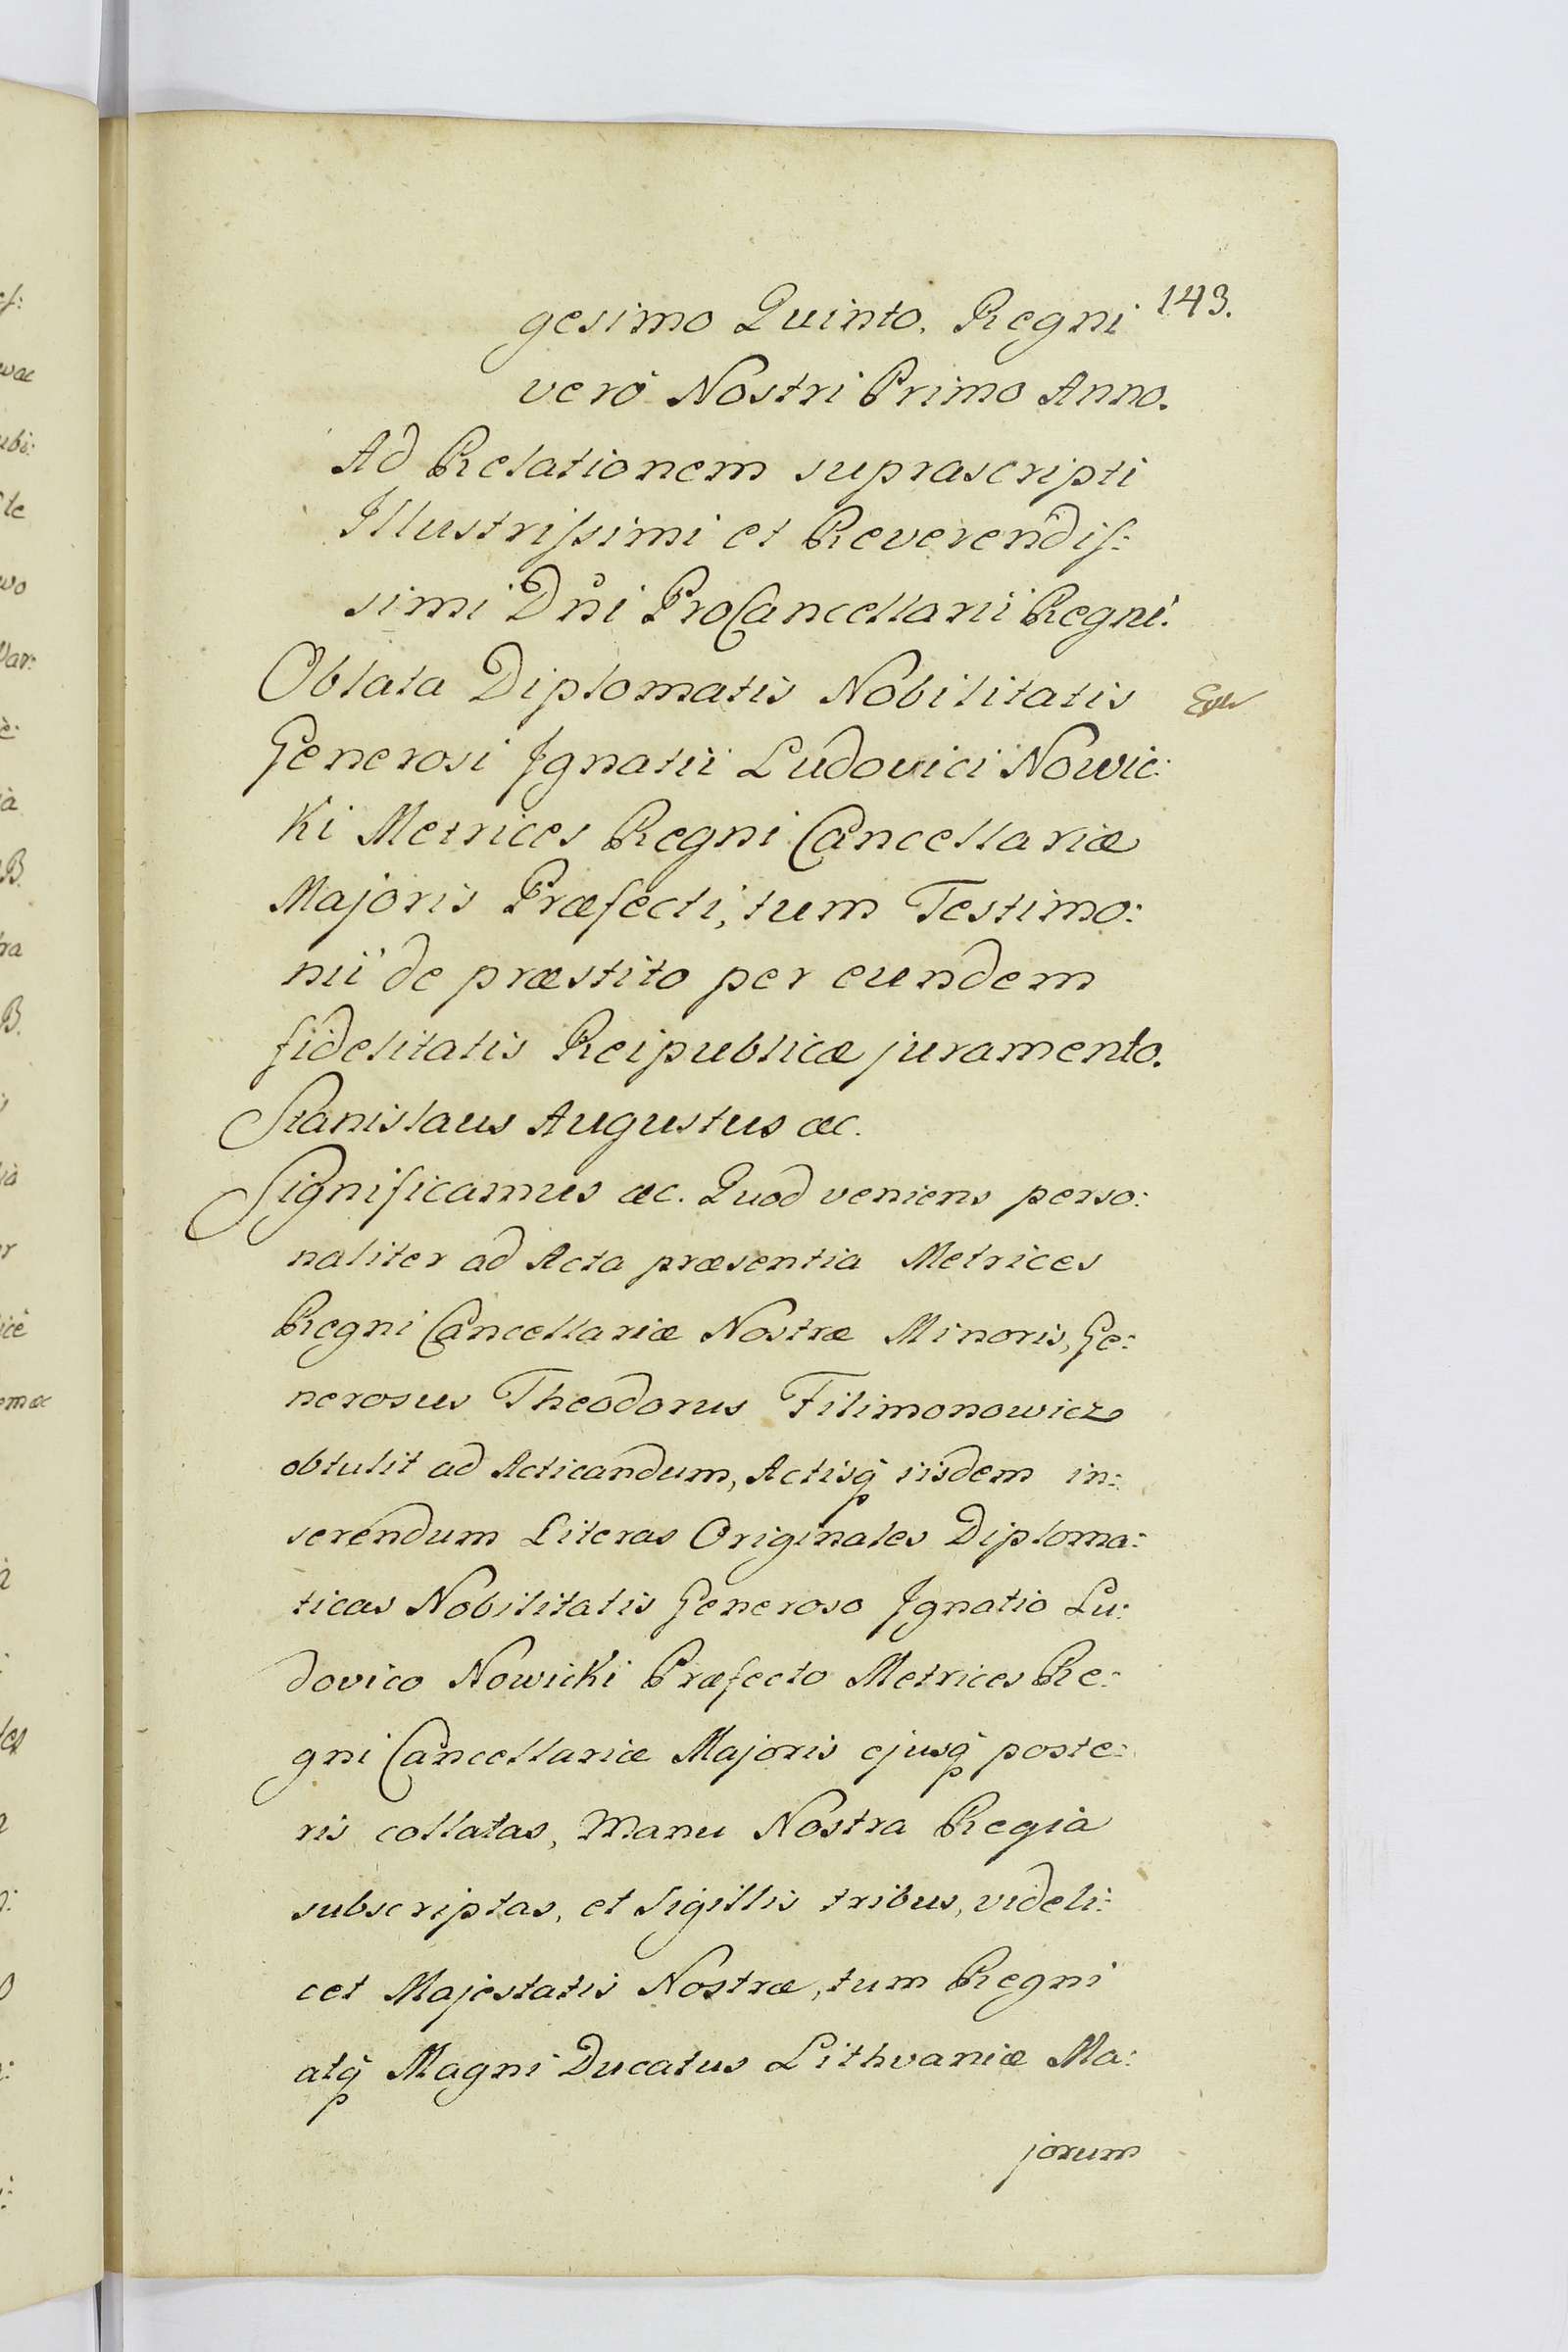 143.
gesimo Quinto. Regni
verô Nostri Primo Anno.
Ad Relationem suprascripti
Illustrissimi et Reverendis:
simi Dn̊i ProCancellarii Regni.
Oblata Diplomatis Nobilitatis
Generosi Ignatii Ludovici Nowic:
Ki Metrices Regni Cancellariæ
Majoris Præfecti, tum Testimo:
nii de præstito per eundem
fidelitatis Reipublicæ juramento.
Stanislaus Augustus &c.
Significamus &c. Quod veniens perso:
naliter ad Acta præsentia Metrices
Regni Cancellariæ Nostræ Minoris, Ge:
nerosus Theodorus Filimonowicz
obtulit ad Acticandum, Actisq̃ iisdem in:
serendum Literas Originales Diploma:
ticas Nobilitatis Generoso Ignatio Lu:
dovico Nowicki Præfecto Metrices Re:
gni Cancellariæ Majoris ejusq̃ poste:
ris collatas, Manu Nostra Regia
subscriptas, et Sigillis tribus, videli:
cet Majestatis Nostræ, tum Regni
atq̃ Magni Ducatus Lithvaniæ Ma:
jorum